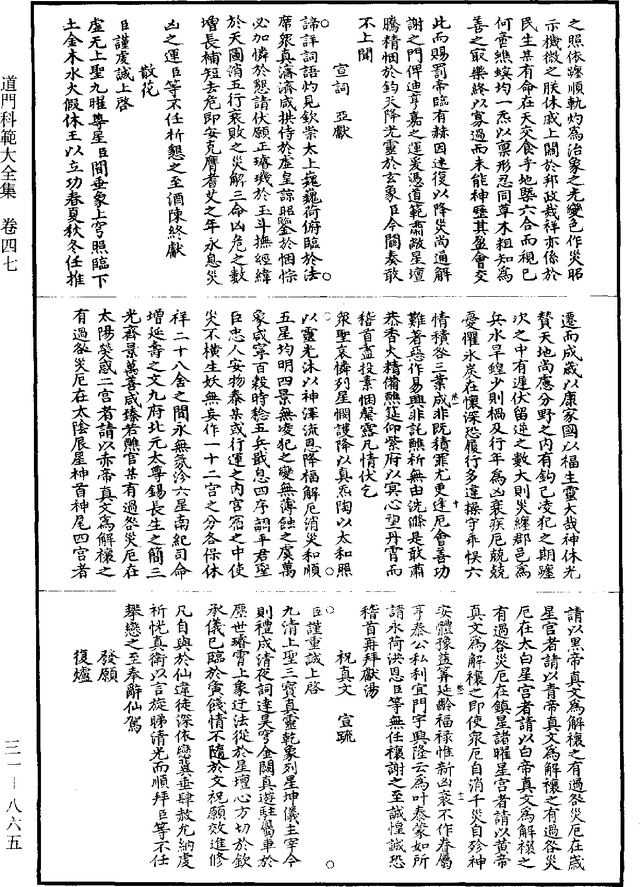 之照依躔順軌灼為治象之光變色作災昭
示機微之朕休咸上關於邦政裁祥亦係於
民生某有命在天交食乎地槩六合而視已
何啻蟭螟均一炁以稟形忍同草木粗知為
善之取樂終以寡過而未能神壓其盈會交
此而賜罰帝臨有赫因速復以降災尚通解
謝之門俾迪亨嘉之運爰憑道範肅敞星壇
騰精悃於鈞天降光靈於玄象臣今關奏敢
不上聞
宣詞 亞獻
諦詳詞語灼見欽崇太上巍巍荷俯臨於法
席眾真濟濟咸拱侍於虛皇諒昭鑒於悃悰
必加憐於懇請伏願正璿璣於玉斗撫經緯
於天圖消五行衰敗之災解三命凶危之數
增長補短去危即安克膺耆艾之年永息災
凶之運臣等不任祈懇之至酒陳終獻
散花
臣謹虔誠上啟
虛无上聖九曜尊星臣聞垂象上穹照臨下
土金木水火假休王以立功春夏秋冬任推
遷而成歲以康家國以福生靈大哉神休光
贊天地尚應分野之內有鉤己凌犯之期躔
次之中有遲伏留逆之數大則災纏郡邑為
兵水旱蝗少則禍及行年為凶衰疾厄兢兢
憂懼氷炭在懷深恐履行多違操守乖悞六
情積咎三業成非既積罪尤更逢厄會善功
難著惡作易興非託醮祈無由洗滌是敢肅
恭香火精備醮筵仰紫府以寘心望丹霄而
稽首盍投素悃罄露凡情伏乞
眾聖哀憐列星憫護降以真炁陶以太和照
以靈光沐以神澤流恩降福解厄消災和順
五星均明四景無凌犯之變無薄蝕之虞萬
象咸寧百穀時稔五兵戢息四序調平君聖
臣忠人安物泰某或行運之內宮宿之中使
災不橫生妖無妄作一十二宮之分各保休
祥二十八舍之間永無氛沴六星南紀司命
增延壽之文九府北元太尊錫長生之簡三
光齊景萬善咸臻若醮官某有過咎災厄在
太陽熒惑二宮者請以赤帝真文為解禳之
有過咎災厄在太陰辰星神首神尾四宮者
請以黑帝真文為解禳之有過咎災厄在歲
星宮者請以青帝真文為解禳之有過咎災
厄在太白星宮者請以白帝真文為解禳之
有過咎災厄在鎮星諸曜星宮者請以黃帝
真文為解禳之即使眾厄自消千災自殄神
安體豫益筭延齡福祿惟新凶衰不作眷屬
亨泰公私利宜門宇興隆云為叶泰蒙如所
請永荷洪恩臣等無任禳謝之至誠惶誠恐
稽首再拜獻湯
祝真文 宣疏
臣謹重誠上啟
九清上聖三寶真靈乾象列星坤儀主宰今
則禮成清夜詞達昊穹金闕真遊駐鸞車於
塵世璿霄上象迂法從於星壇心方切於欽
承儀已臨於寅餞情不隨於文祝願效進修
凡自與於仙違徒深依戀冀垂肆赦允納虔
祈恍真衛以言旋睇清光而順拜臣等不任
攀戀之至奉辭仙駕
發願
復爐
道門科範大全集 卷四七
三一—八六五